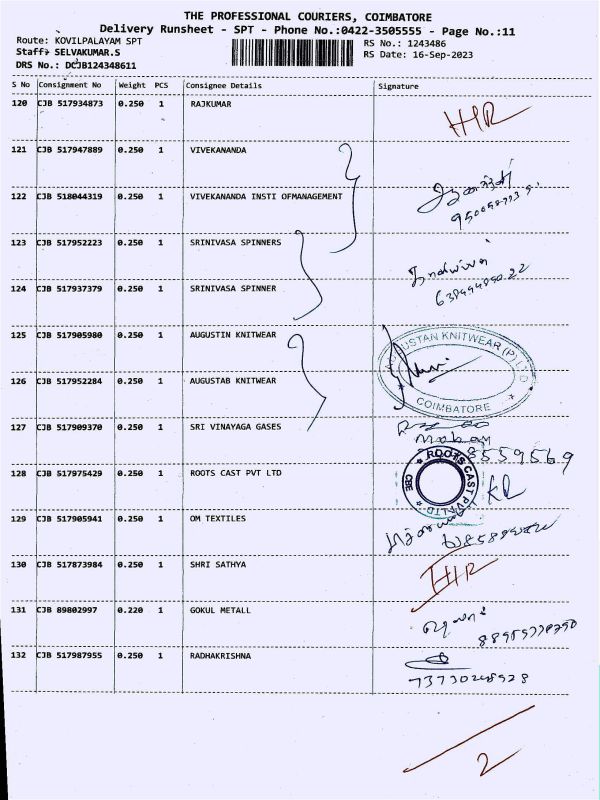 THE PROFESSIONAL COURIERS, COIMBATORE
Delivery Runsheet - SPT - Phone No.:0422-3505555 - Page No.:11
Route: KOVILPALAYAM SPT
RS No.: 1243486
Staff: SELVAKUMAR.S
RS Date: 16-Sep-2023
DRS No.: DCJB124348611
S No Consignment No Weight PCS Consignee Details Signature
120 CJB 517934873 0.250 1 RAJKUMAR
121 CJB 517947889 0.250 1 VIVEKANANDA
122 CJB 518044319 0.250 1 VIVEKANANDA INSTI OFMANAGEMENT
123 CJB 517952223 0.250 1 SRINIVASA SPINNERS
124 CJB 517937379 0.250 1 SRINIVASA SPINNER
125 CJB 517905980 0.250 1 AUGUSTIN KNITWEAR
AUGUSTAN KNITWEAR (P) LTD
126 CJB 517952284 0.250 1 AUGUSTAB KNITWEAR
COIMBATORE
127 CJB 517909370 0.250 1 SRI VINAYAGA GASES
8559569
128 CJB 517975429 0.250 1 ROOTS CAST PVT LTD
ROOTS CAST PVT LTD CBE
129 CJB 517905941 0.250 1 OM TEXTILES
130 CJB 517873984 0.250 1 SHRI SATHYA
131 CJB 89802997 0.220 1 GOKUL METALL
132 CJB 517987955 0.250 1 RADHAKRISHNA
2